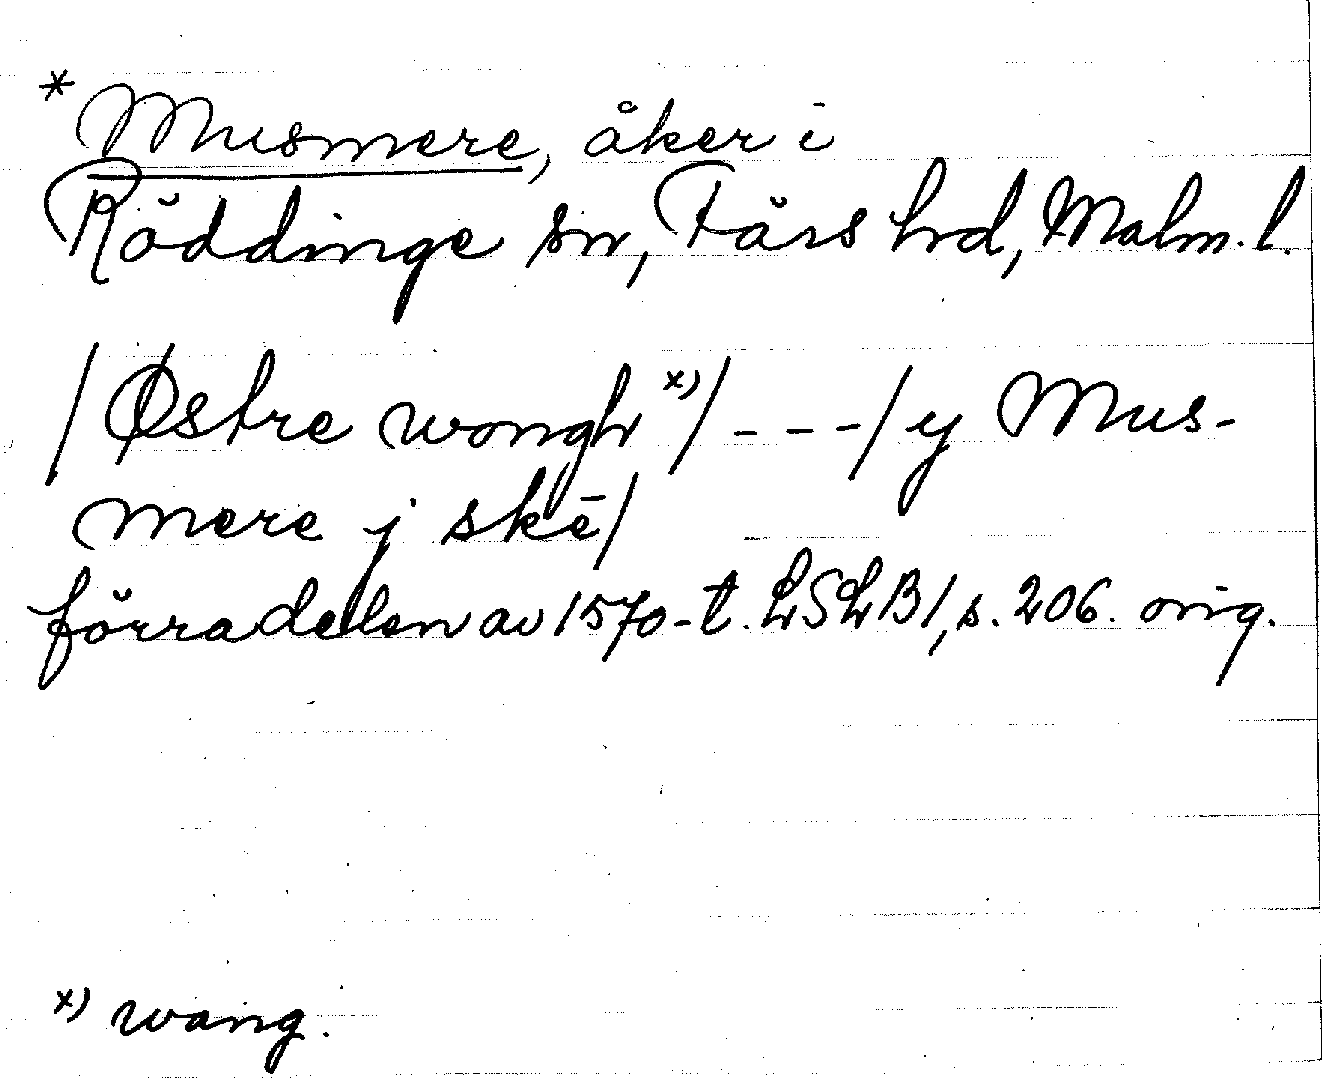 * Musmere, åker i
Röddinge sn, Färs hd, Malm. l.
/Østre wongh x)/ - - - / y Mus-
mere j skē/
förra delen av 1570-t. LSLB1, s. 206. orig.
x) wang.